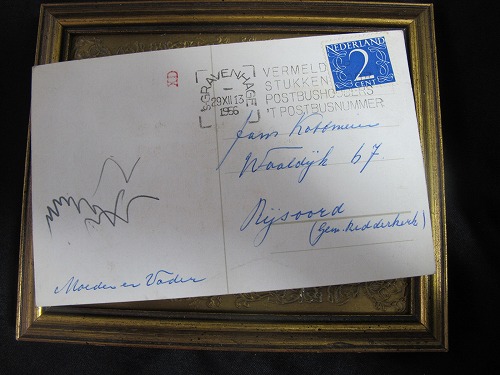 I.D
'S GRAVENHAGE
I
29 XII 13
1956
VERMELD
STUKKEN
POSTBUSHOUDERS
'T POSTBUSNUMMER
NEDERLAND
2
CENT
Waaldijk 67.
Rijsoord
(Gem. Ridderkerk)
Moeder en Vader